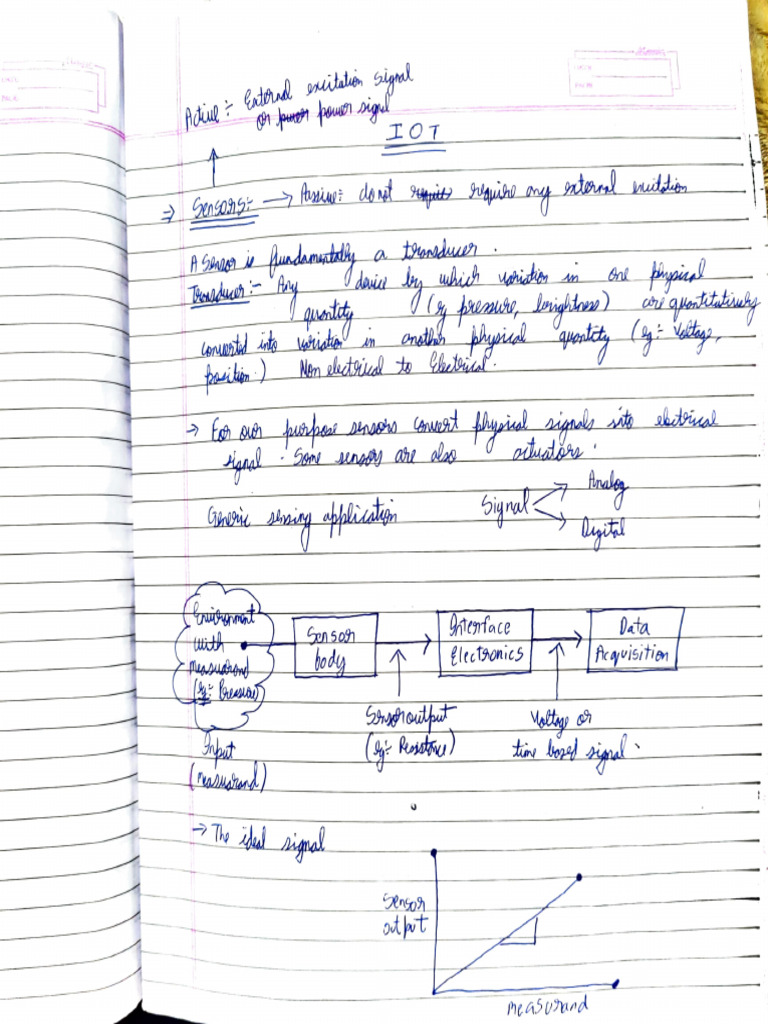 Active:- External excitation signal
or power power signal
IOT
⇒ Sensors:- → Passive:- do not require require any external excitation
A Sensor is fundamentally a transducer.
Transducer:- Any device by which variation in one physical
quantity (eg pressure, brightness) are quantitatively
converted into variation in another physical quantity (eg:- Voltage,
position.) Non electrical to Electrical.
→ For our purpose sensors convert physical signals into electrical
signal. Some sensors are also actuators.
Generic sensing application
Signal
Analog
Digital
Environment
with
measurand
(eg:- Pressure)
Sensor
body
Interface
Electronics
Data
Acquisition
Input
(measurand)
Sensor output
(eg:- Resistance)
Voltage or
time based signal.
→ The ideal signal
Sensor
output
measurand